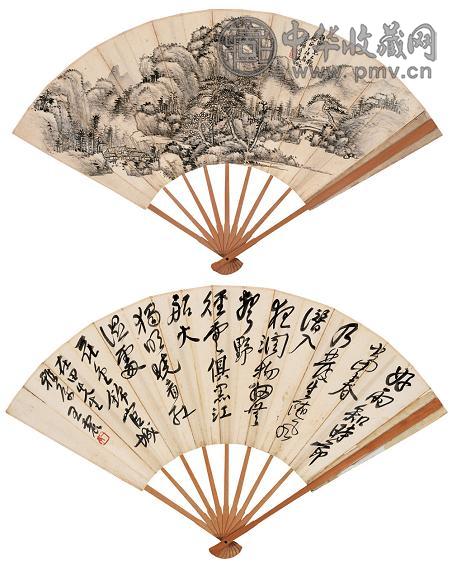 中华收藏网
www.pmv.cn
好雨
當春知時節
乃發生隨風
潛入
夜潤物細無
聲野
徑雲俱黑江
船火
獨明曉看紅
濕處
花重錦官城
在田先生